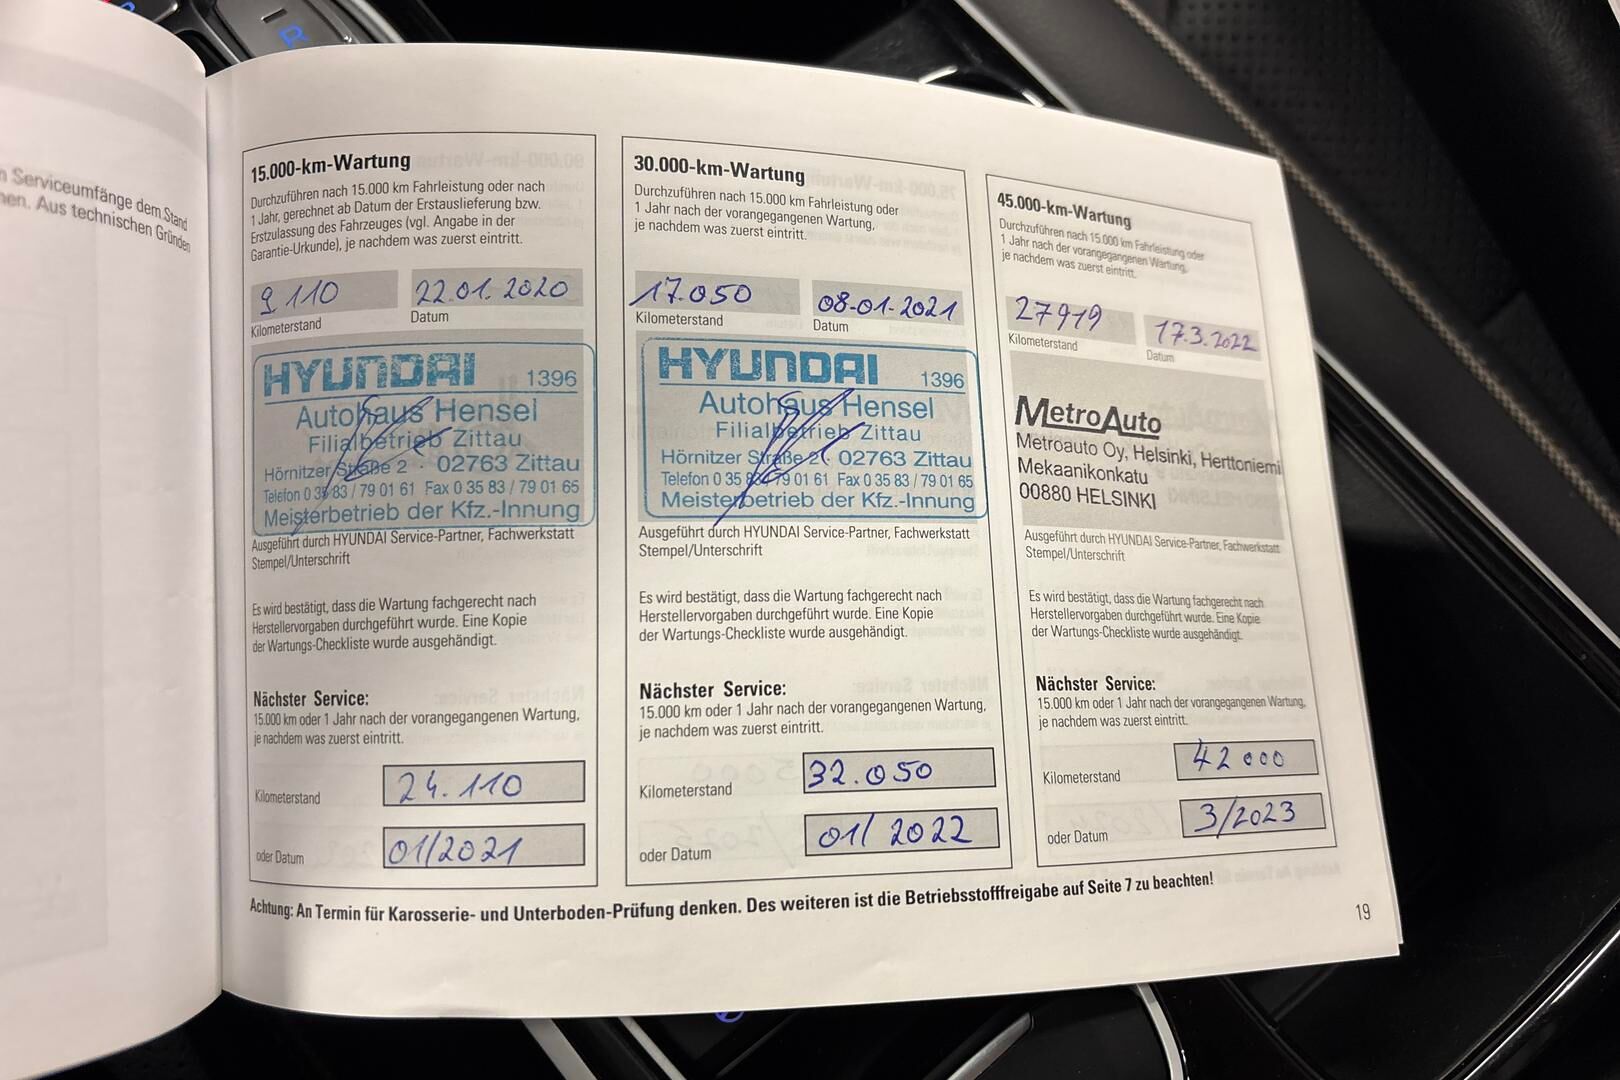 n Serviceumfänge dem Stand
nen. Aus technischen Gründen
R
15.000-km-Wartung
Durchzuführen nach 15.000 km Fahrleistung oder nach
1 Jahr, gerechnet ab Datum der Erstauslieferung bzw.
Erstzulassung des Fahrzeuges (vgl. Angabe in der
Garantie-Urkunde), je nachdem was zuerst eintritt.
9 110 22.01.2020
Kilometerstand Datum
HYUNDAI 1396
Autohaus Hensel
Filialbetrieb Zittau
Hörnitzer Straße 2 · 02763 Zittau
Telefon 0 35 83 / 79 01 61 Fax 0 35 83 / 79 01 65
Meisterbetrieb der Kfz.-Innung
Ausgeführt durch HYUNDAI Service-Partner, Fachwerkstatt
Stempel/Unterschrift
Es wird bestätigt, dass die Wartung fachgerecht nach
Herstellervorgaben durchgeführt wurde. Eine Kopie
der Wartungs-Checkliste wurde ausgehändigt.
Nächster Service:
15.000 km oder 1 Jahr nach der vorangegangenen Wartung,
je nachdem was zuerst eintritt.
Kilometerstand 24.110
oder Datum 01/2021
30.000-km-Wartung
Durchzuführen nach 15.000 km Fahrleistung oder
1 Jahr nach der vorangegangenen Wartung,
je nachdem was zuerst eintritt.
17.050 08.01.2021
Kilometerstand Datum
HYUNDAI 1396
Autohaus Hensel
Filialbetrieb Zittau
Hörnitzer Straße 2 · 02763 Zittau
Telefon 0 35 83 / 79 01 61 Fax 0 35 83 / 79 01 65
Meisterbetrieb der Kfz.-Innung
Ausgeführt durch HYUNDAI Service-Partner, Fachwerkstatt
Stempel/Unterschrift
Es wird bestätigt, dass die Wartung fachgerecht nach
Herstellervorgaben durchgeführt wurde. Eine Kopie
der Wartungs-Checkliste wurde ausgehändigt.
Nächster Service:
15.000 km oder 1 Jahr nach der vorangegangenen Wartung,
je nachdem was zuerst eintritt.
Kilometerstand 32.050
oder Datum 01/2022
45.000-km-Wartung
Durchzuführen nach 15.000 km Fahrleistung oder
1 Jahr nach der vorangegangenen Wartung,
je nachdem was zuerst eintritt.
27919 17.3.2022
Kilometerstand Datum
MetroAuto
Metroauto Oy, Helsinki, Herttoniemi
Mekaanikonkatu
00880 HELSINKI
Ausgeführt durch HYUNDAI Service-Partner, Fachwerkstatt
Stempel/Unterschrift
Es wird bestätigt, dass die Wartung fachgerecht nach
Herstellervorgaben durchgeführt wurde. Eine Kopie
der Wartungs-Checkliste wurde ausgehändigt.
Nächster Service:
15.000 km oder 1 Jahr nach der vorangegangenen Wartung,
je nachdem was zuerst eintritt.
Kilometerstand 42000
oder Datum 3/2023
Achtung: An Termin für Karosserie- und Unterboden-Prüfung denken. Des weiteren ist die Betriebsstofffreigabe auf Seite 7 zu beachten!
19